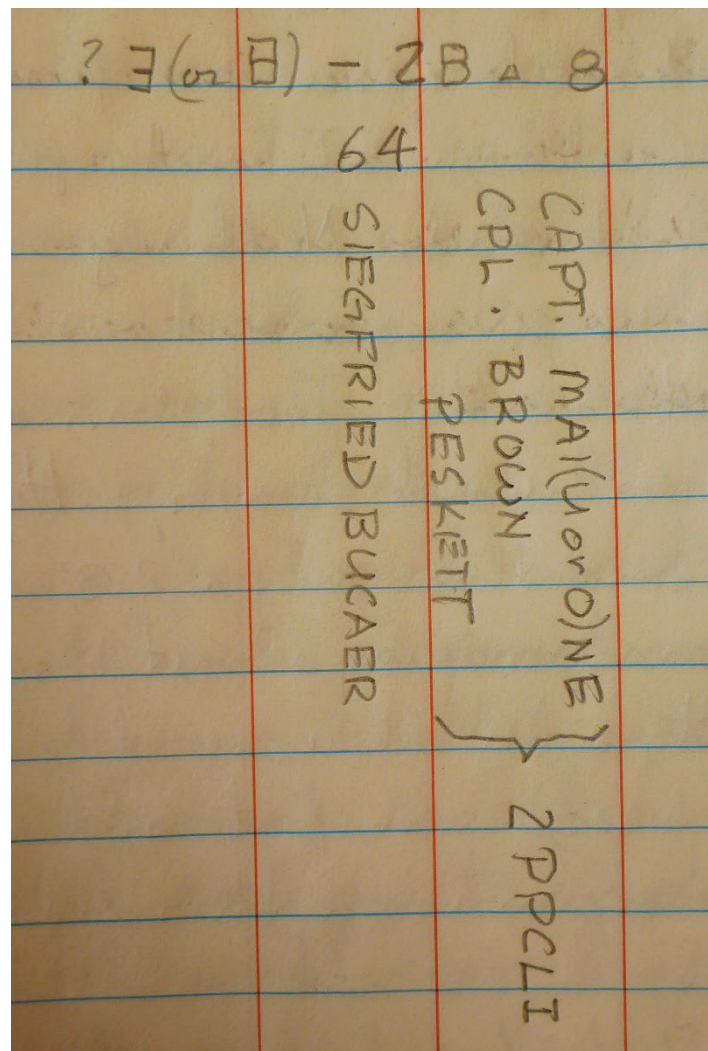 ? ∃(or 日) - 2B △ 8
64
CAPT. MAI(U or O)NE
CPL. BROWN
PESKETT
} 2 PPCLI
SIEGFRIED BUCAER